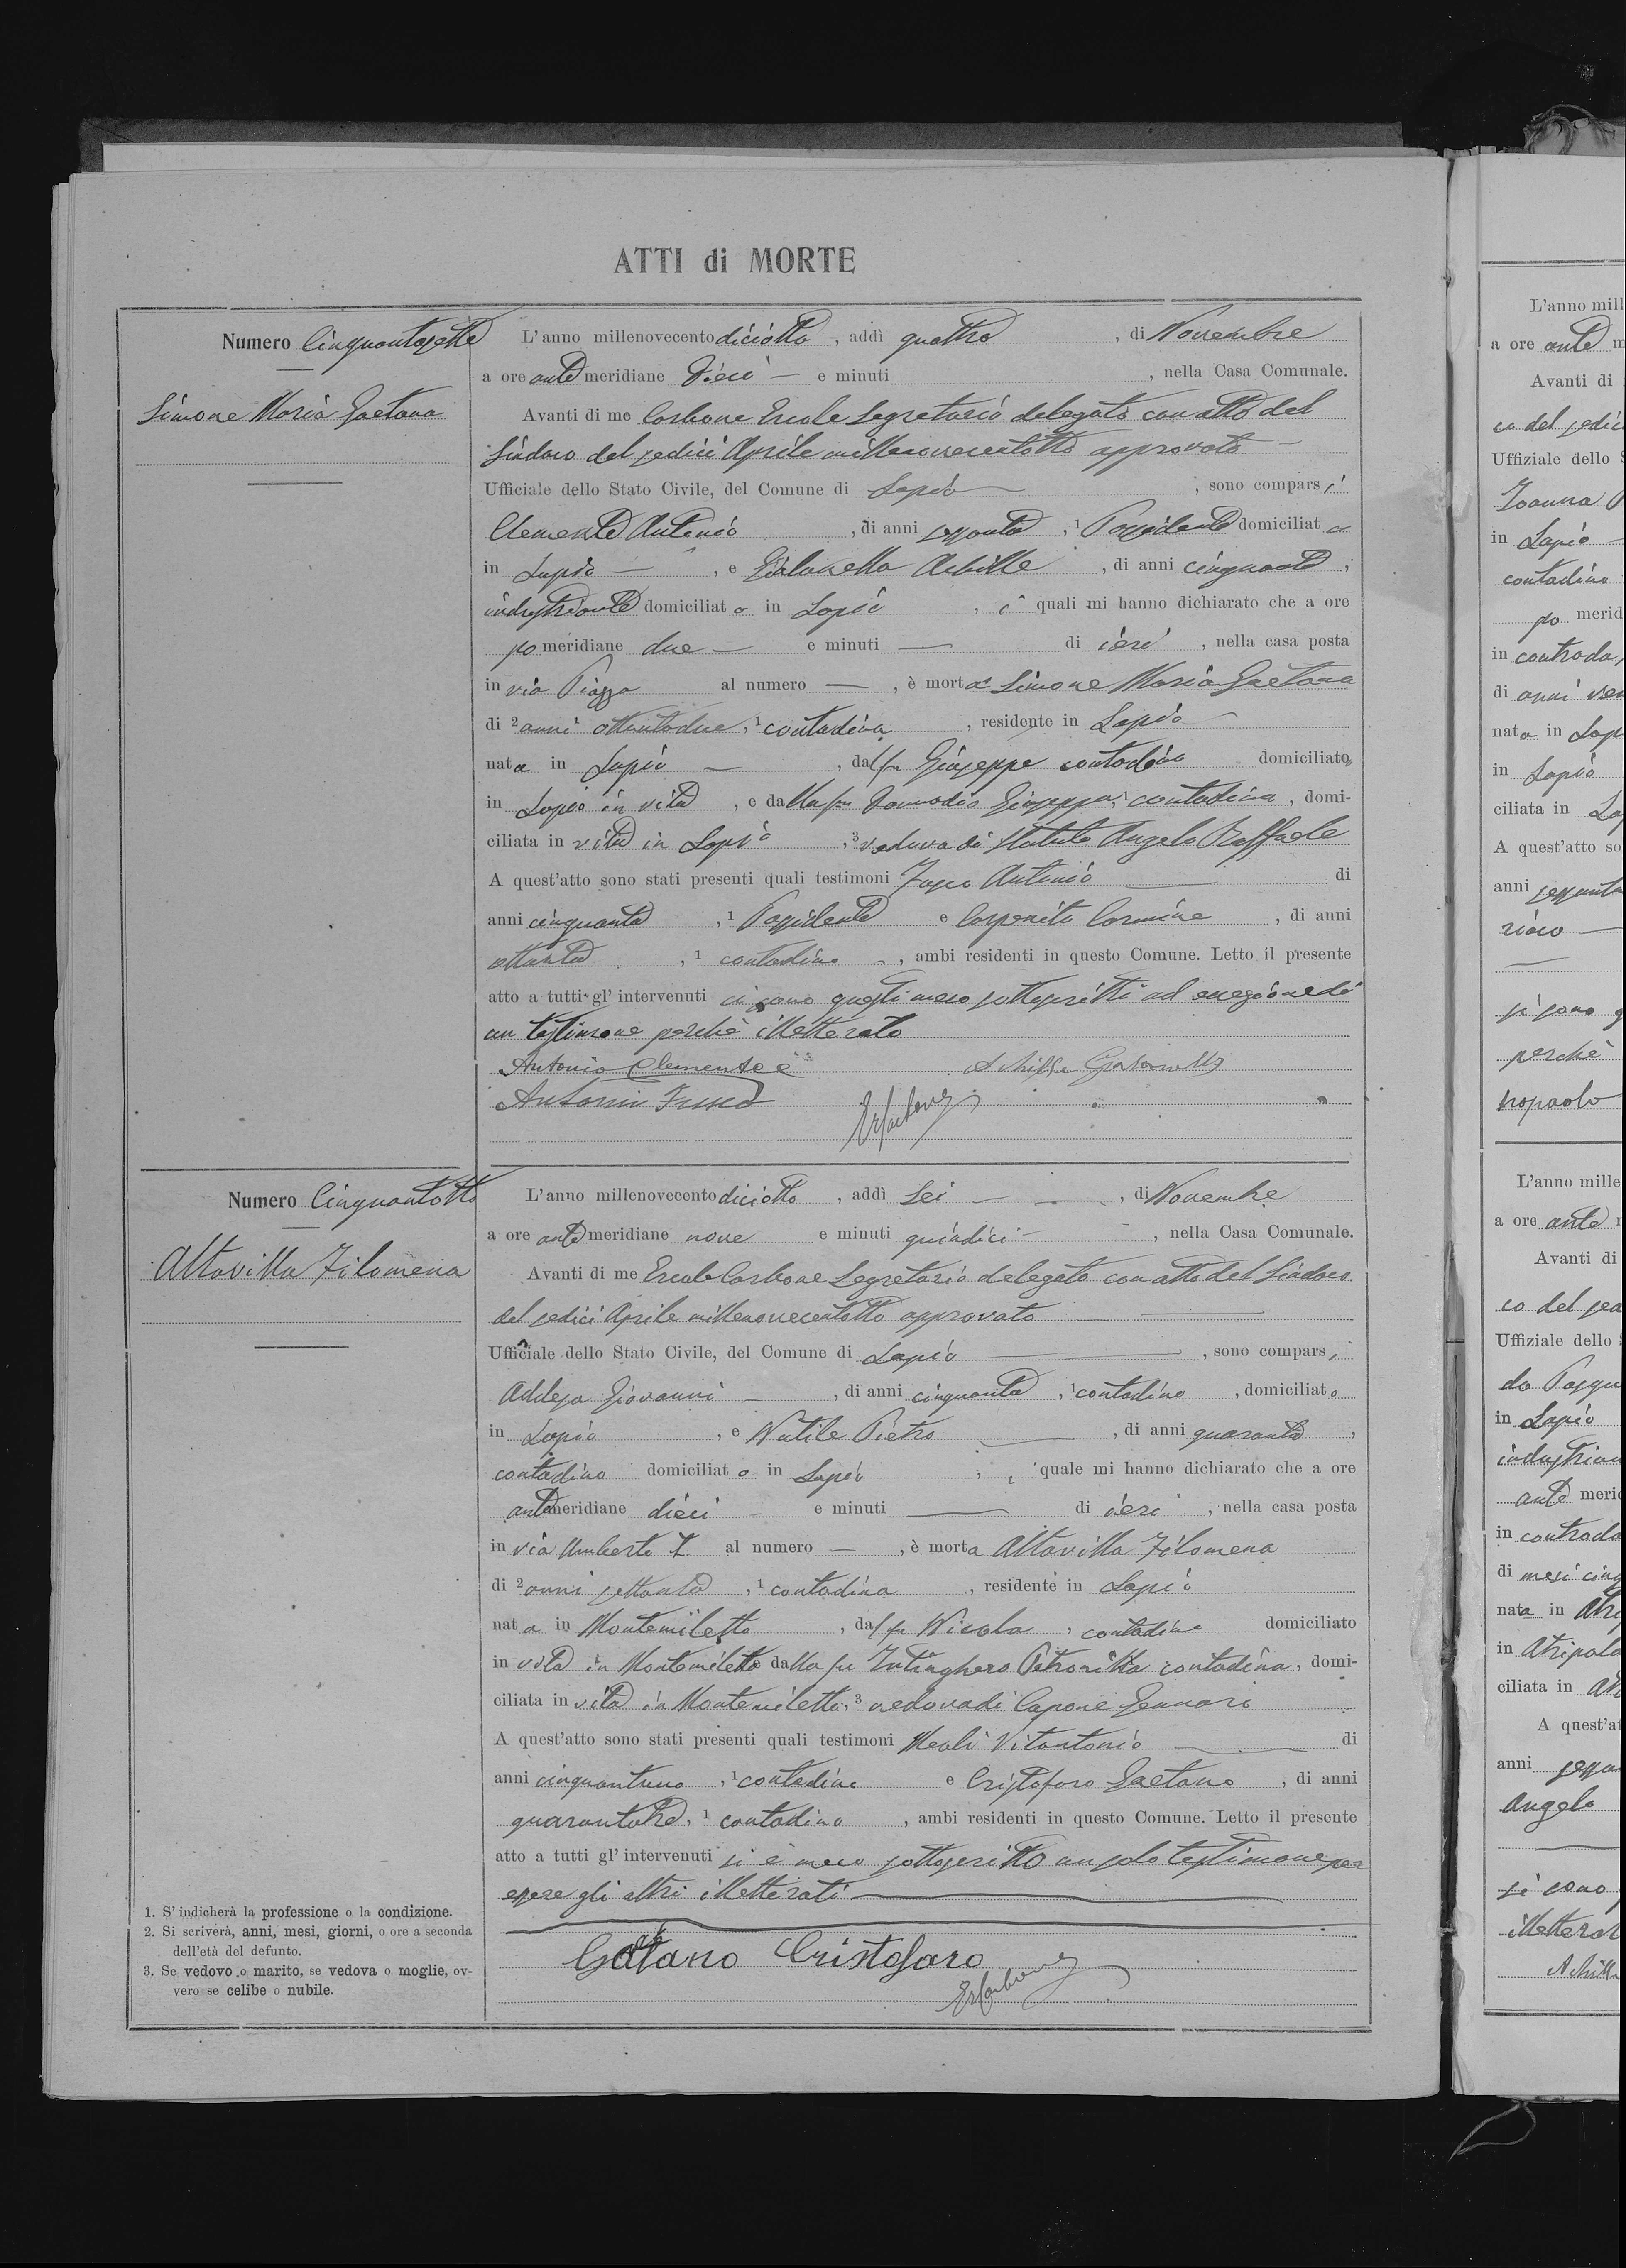 ATTI di MORTE
Numero Cinquantasette
Simone Maria Gaetana
L'anno millenovecento diciotto, addì quattro, di Novembre
a ore ante meridiane dieci — e minuti , nella Casa Comunale.
Avanti di me Carbone Ercole Segretario delegato con atto del
Sindaco del sedici Aprile millenovecentotto approvato —
Ufficiale dello Stato Civile, del Comune di Lapio — , sono comparsi
Clemente Antonio , di anni sessanta , 1 Possidente domiciliat o
in Lapio — , e Achille , di anni cinquanta ,
industriante domiciliat o in Lapio , i quali mi hanno dichiarato che a ore
po meridiane due — e minuti — di ieri , nella casa posta
in via Piazza al numero — , è morta Simone Maria Gaetana
di 2 anni ottantadue , 1 contadina , residente in Lapio —
nata in Lapio — , dal fu Giuseppe contadino domiciliato
in Lapio in vita , e dalla fu Giuseppa contadina , domi-
ciliata in vita in Lapio , 3 vedova di Angelo Raffaele
A quest'atto sono stati presenti quali testimoni Antonio — di
anni cinquanta , 1 Possidente e Carpenito Carmine , di anni
ottanta , 1 contadino , ambi residenti in questo Comune. Letto il presente
atto a tutti gl' intervenuti si sono questi meco sottoscritti ad eccezione di
un testimone perchè illetterato
Antonio Clemente
Numero Cinquantotto
Altavilla Filomena
L'anno millenovecento diciotto , addì Sei — , di Novembre
a ore ante meridiane nove e minuti quindici — , nella Casa Comunale.
Avanti di me Ercole Carbone Segretario delegato con atto del Sindaco
del sedici Aprile millenovecentotto approvato —
Ufficiale dello Stato Civile, del Comune di Lapio — , sono comparsi
Addesa Giovanni — , di anni cinquanta , 1 contadino , domiciliato
in Lapio , e Nutile Pietro — , di anni quaranta ,
contadino domiciliat o in Lapio , i quale mi hanno dichiarato che a ore
antemeridiane dieci — e minuti — di ieri , nella casa posta
in via Umberto I al numero — , è morta Altavilla Filomena
di 2 anni settanta , 1 contadina , residente in Lapio
nat a in Montemiletto , dal fu Nicola , contadino domiciliato
in vita in Montemiletto e dalla fu Petronilla contadina , domi-
ciliata in vita in Montemiletto , 3 vedova di Capone Gennaro
A quest'atto sono stati presenti quali testimoni Meoli Vitantonio — di
anni cinquantuno , 1 contadino e Cristofaro Gaetano , di anni
quarantatre , 1 contadino , ambi residenti in questo Comune. Letto il presente
atto a tutti gl' intervenuti si è meco sottoscritto un solo testimone per
essere gli altri illetterati —
Gaetano Cristofaro
1. S' indicherà la professione o la condizione.
2. Si scriverà, anni, mesi, giorni, o ore a seconda
dell'età del defunto.
3. Se vedovo o marito, se vedova o moglie, ov-
vero se celibe o nubile.
L'anno mill
a ore ante m
Avanti di
co del sedic
Uffiziale dello S
in Lapio —
contadino
po merid
in contrada
di anni ven
nata in Lap
in Lapio
ciliata in La
A quest'atto so
anni sessanta
si sono q
perchè
L'anno mille
a ore ante
Avanti di
co del sed
Uffiziale dello
in Lapio
industrian
ante meri
in contrada
di mesi cinq
nata in Atri
in Atripald
ciliata in Atr
A quest'at
anni sessa
Angelo
si sono
illetterat
Achill